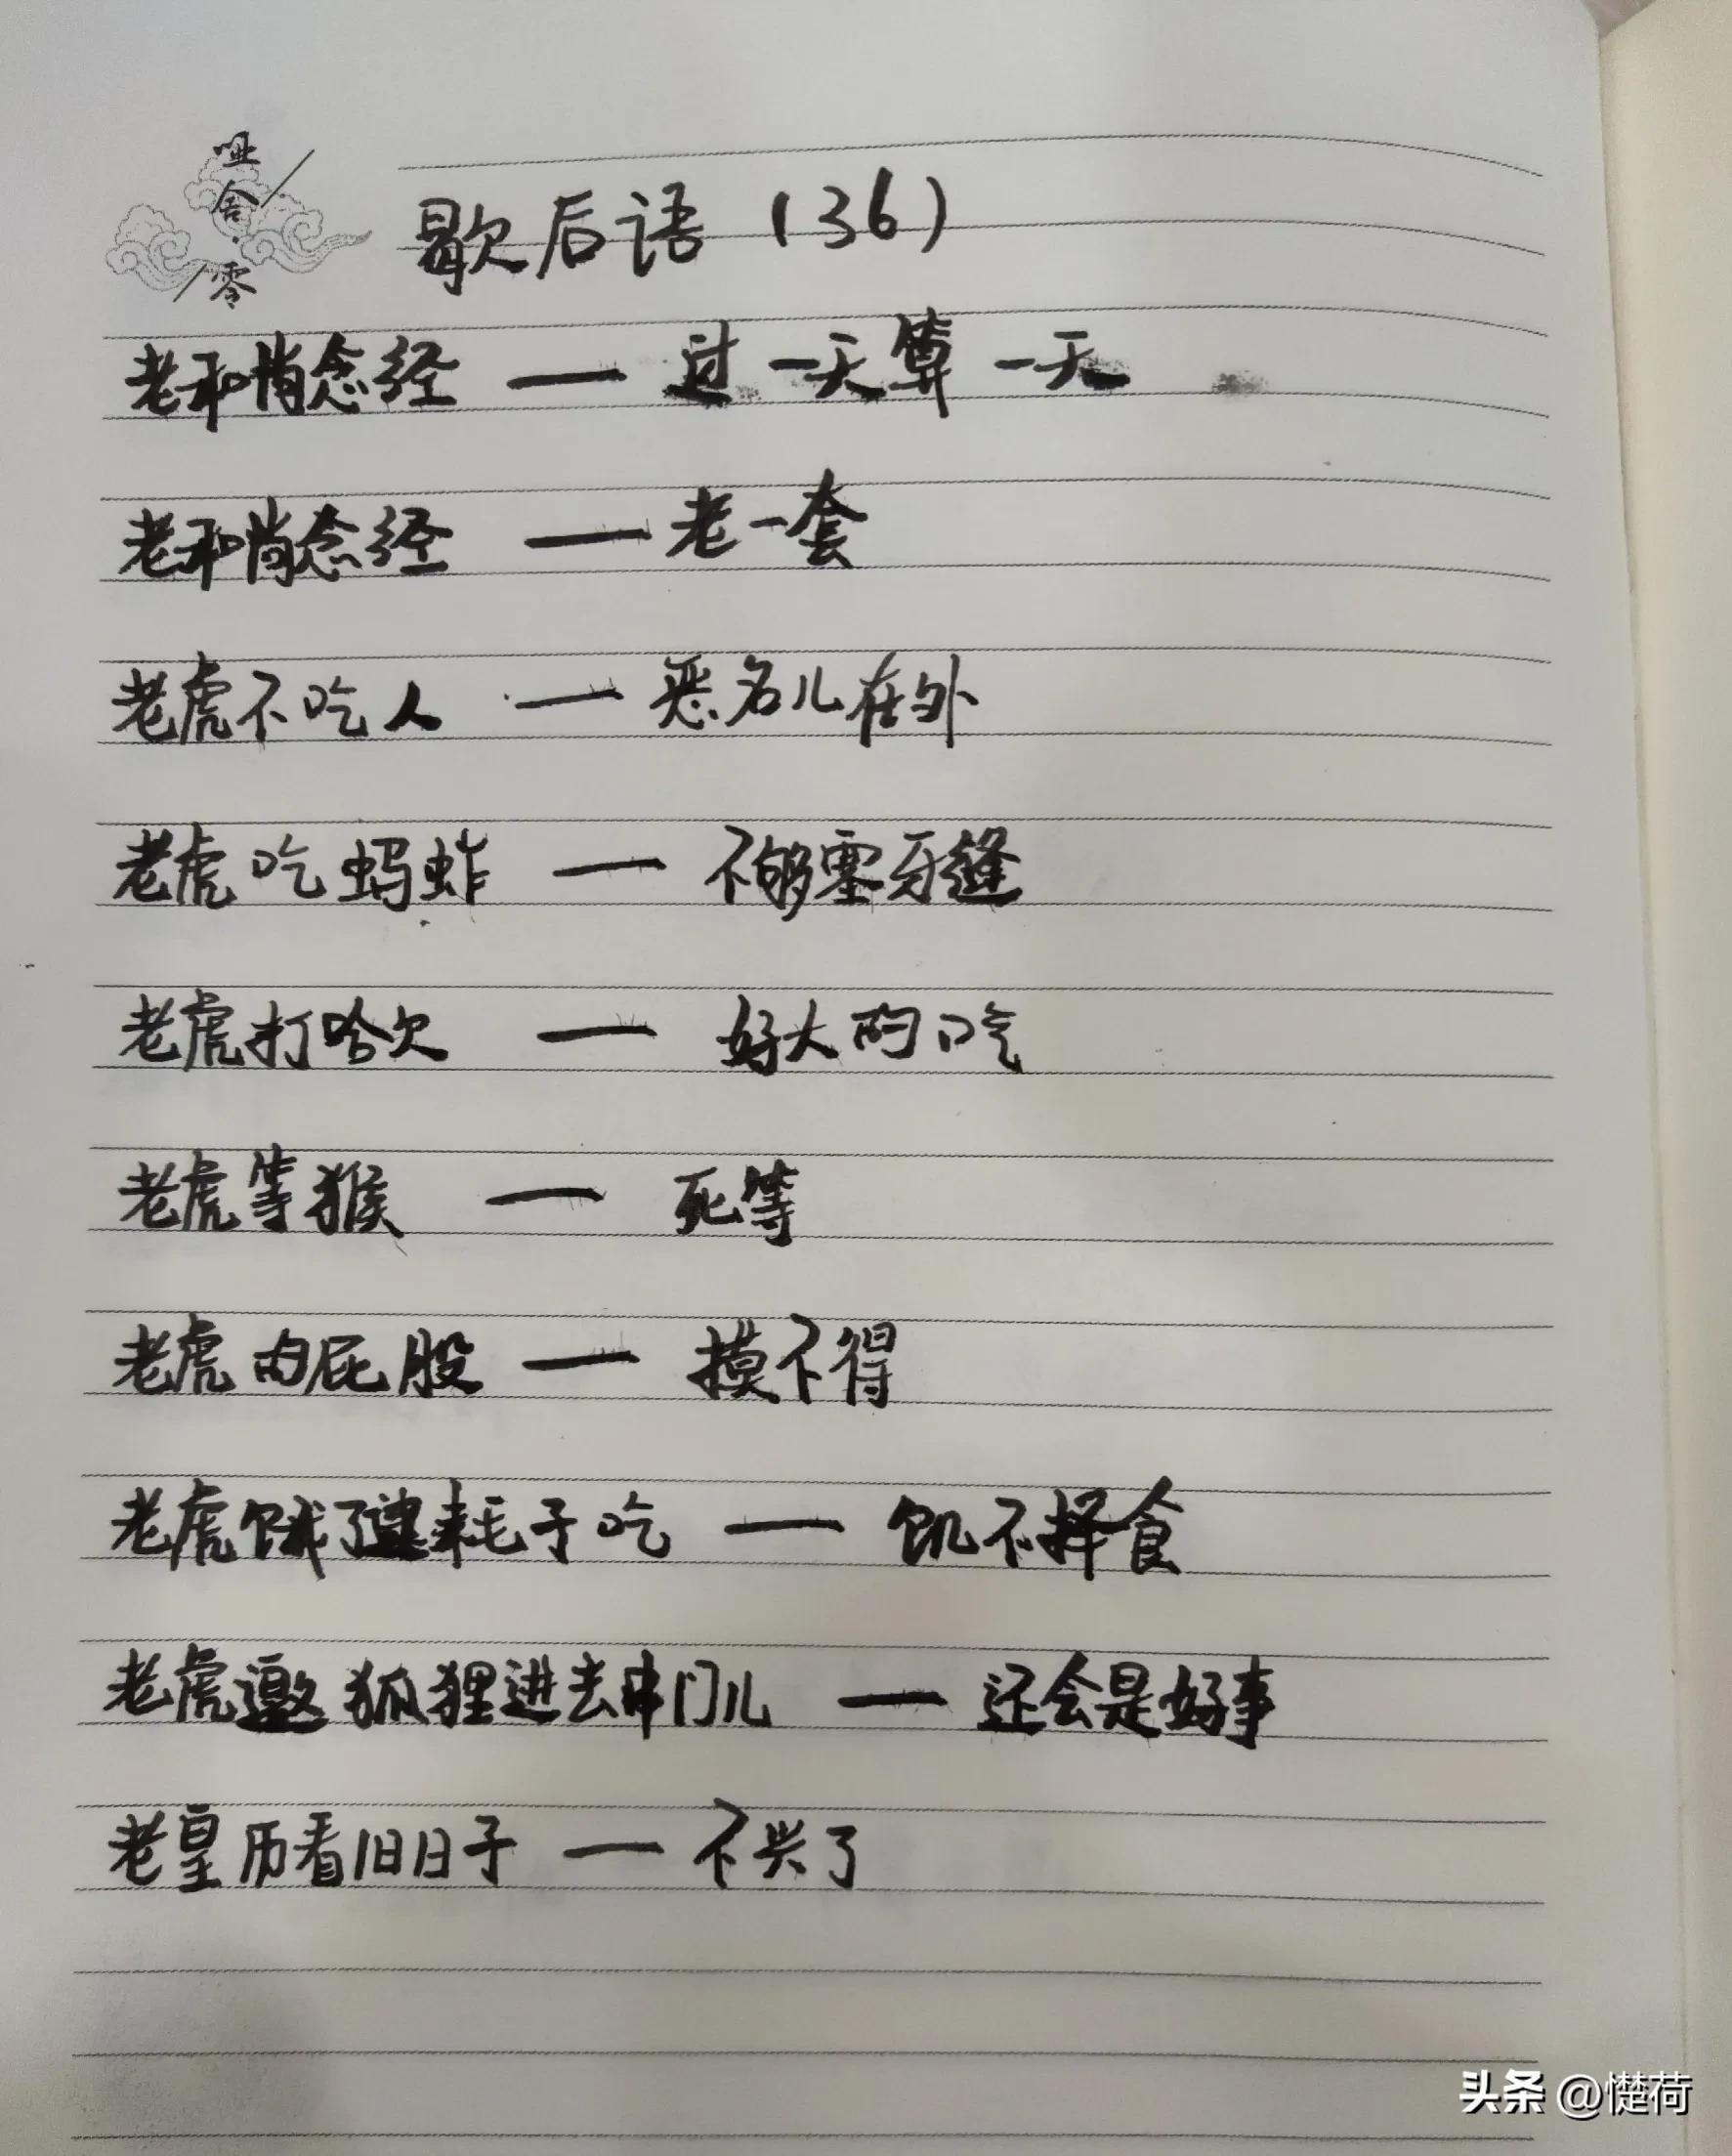 呾
舍
零
歇后语（36）
老和尚念经 — 过一天算一天
老和尚念经 — 老一套
老虎不吃人 — 恶名儿在外
老虎吃蚂蚱 — 不够塞牙缝
老虎打哈欠 — 好大的口气
老虎等猴 — 死等
老虎的屁股 — 摸不得
老虎饿了逮耗子吃 — 饥不择食
老虎邀狐狸进去串门儿 — 还会是好事
老皇历看旧日子 — 不兴了
头条 @憷荷